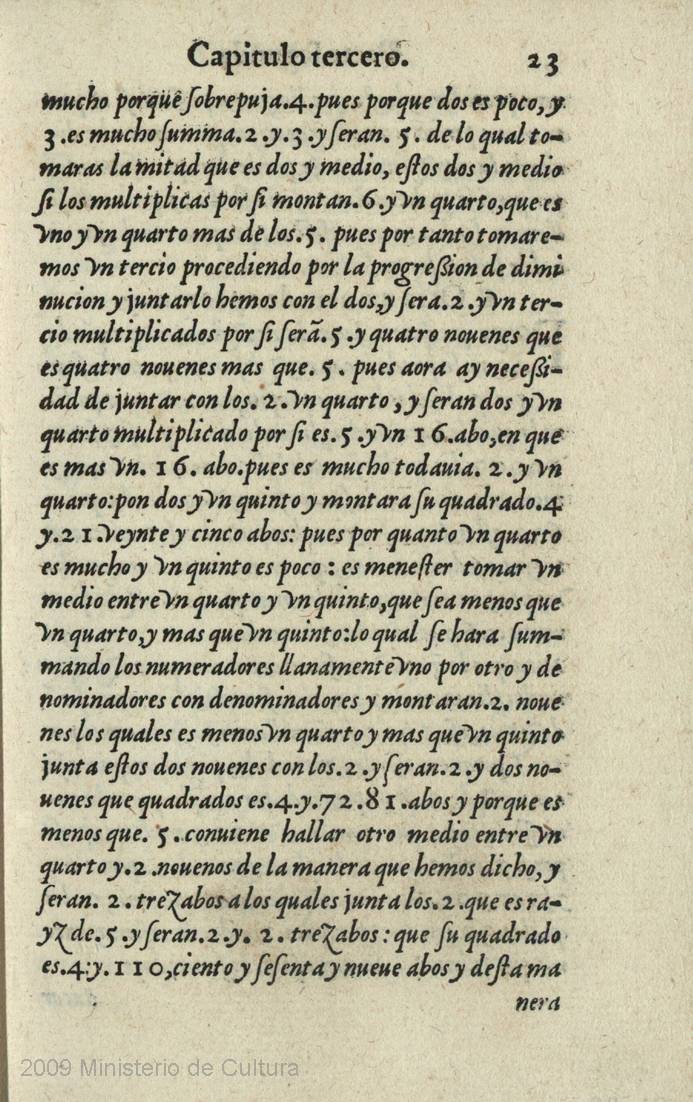 Capitulo tercero. 23
mucho porque sobrepuja.4.pues porque dos es poco, y
3.es mucho summa.2.y.3.y seran. 5. de lo qual to-
maras la mitad que es dos y medio, estos dos y medio
si los multiplicas por si montan.6.y vn quarto,que es
vno y vn quarto mas de los.5. pues por tanto tomare-
mos vn tercio procediendo por la progreßion de dimi
nucion y juntarlo hemos con el dos,y sera.2.y vn ter-
cio multiplicados por si serã.5.y quatro nouenes que
es quatro nouenes mas que.5. pues aora ay neceßi-
dad de juntar con los.2.vn quarto, y seran dos y vn
quarto multiplicado por si es.5.y vn 16.abo,en que
es mas vn. 16. abo.pues es mucho todauia. 2.y vn
quarto:pon dos y vn quinto y montara su quadrado.4
y.21.veynte y cinco abos: pues por quanto vn quarto
es mucho y vn quinto es poco: es menester tomar vn
medio entre vn quarto y vn quinto,que sea menos que
vn quarto,y mas que vn quinto:lo qual se hara sum-
mando los numeradores llanamente vno por otro y de
nominadores con denominadores y montaran.2. noue
nes los quales es menos vn quarto y mas que vn quinto
junta estos dos nouenes con los.2.y seran.2.y dos no-
uenes que quadrados es.4.y.72.81.abos y porque es
menos que. 5.conuiene hallar otro medio entre vn
quarto y.2.nouenos de la manera que hemos dicho, y
seran. 2.trezabos a los quales junta los.2.que es ra-
yz de.5.y seran.2.y. 2. trezabos: que su quadrado
es.4.y.110,ciento y sesenta y nueue abos y desta ma
nera
2009 Ministerio de Cultura